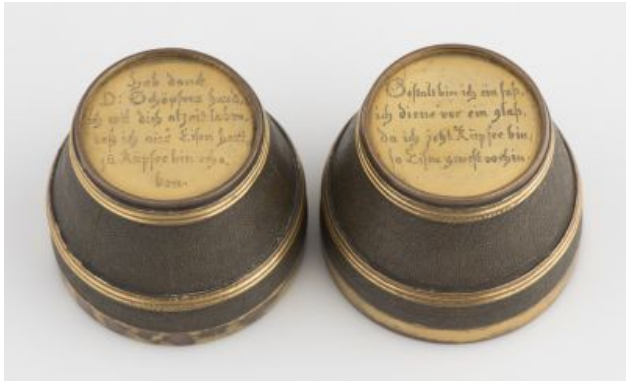 Hab danck
D: Schöpfers hand,
Ich wil dich alzeit loben,
daß ich aus Eisen hart
zu Küpfer bin erho,
ben.
Gestalt bin ich ein faß,
ich diene vor ein glaß,
da ich jetzt Küpfer bin,
so Eisen gewest vorhin.